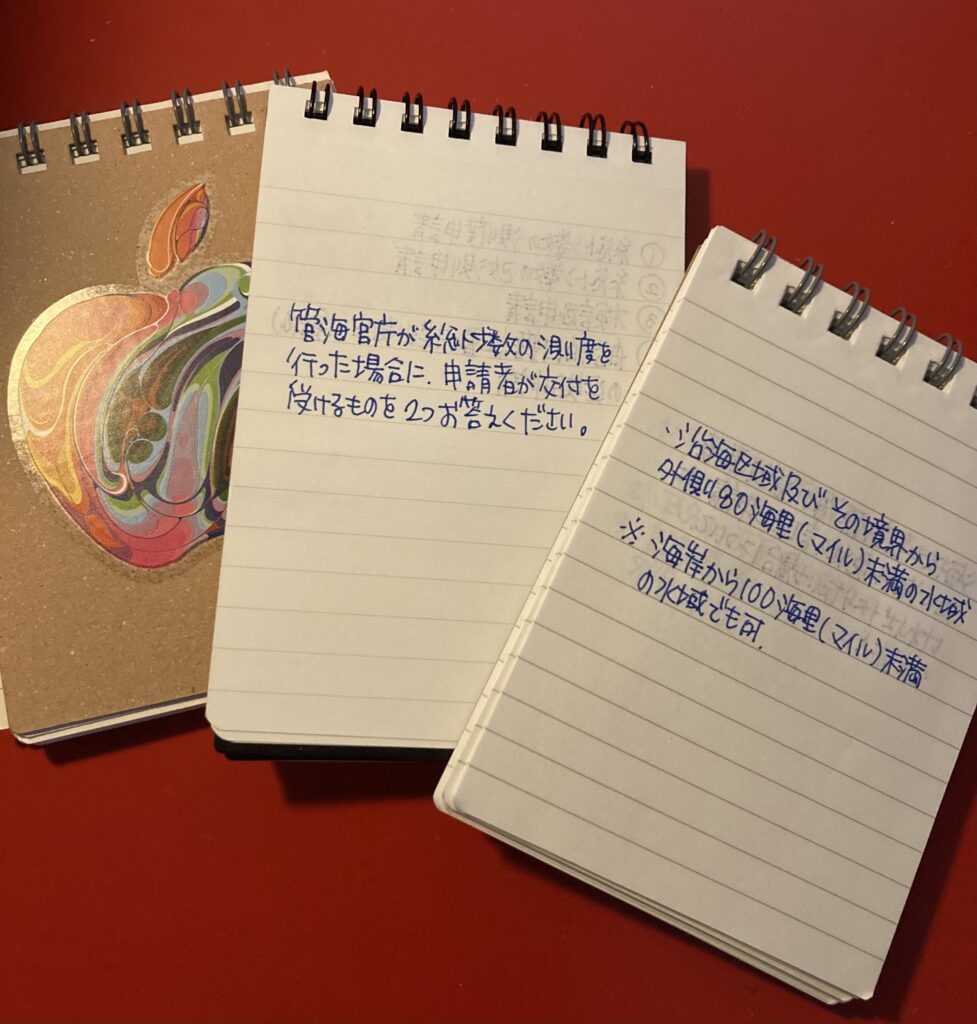 管海官庁が総トン数の測度を
行った場合に、申請者が交付を
受けるものを2つお答えください。
沿海区域及びその境界から
外側80海里(マイル)未満の水域
※海岸から100海里(マイル)未満
の水域でも可.